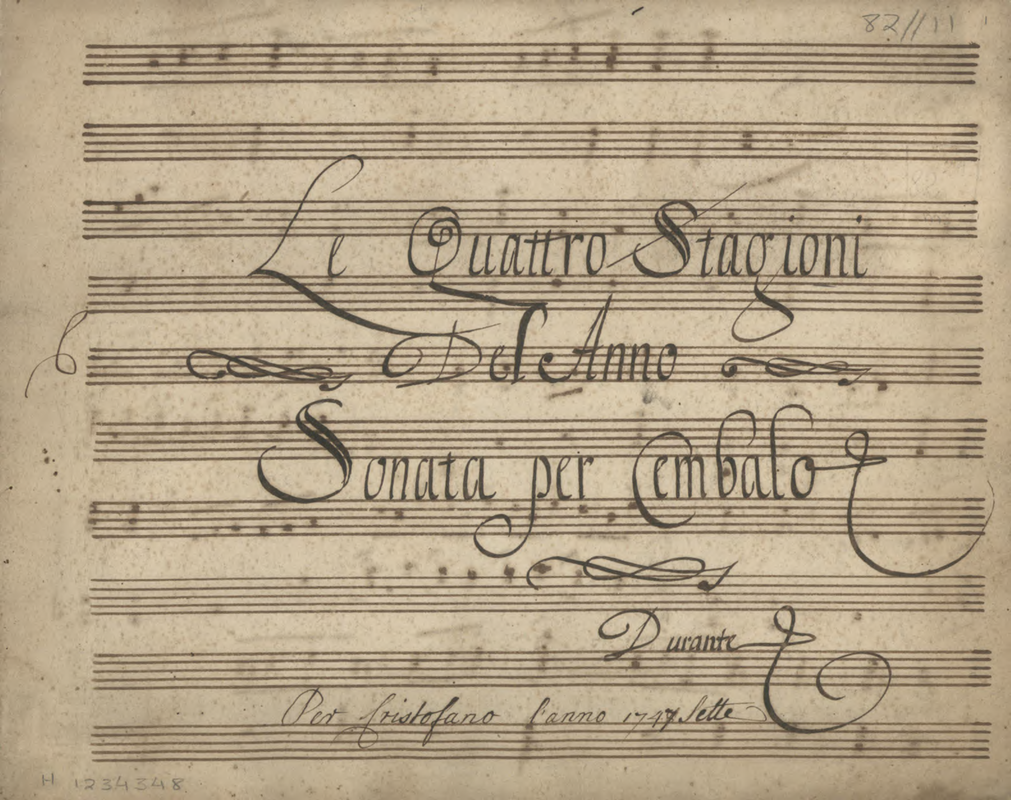 82//11
Le Quattro Stagioni
Del Anno
Sonata per Cembalo
Durante
Per Cristofano l'anno 1747 Sette
H 1234348